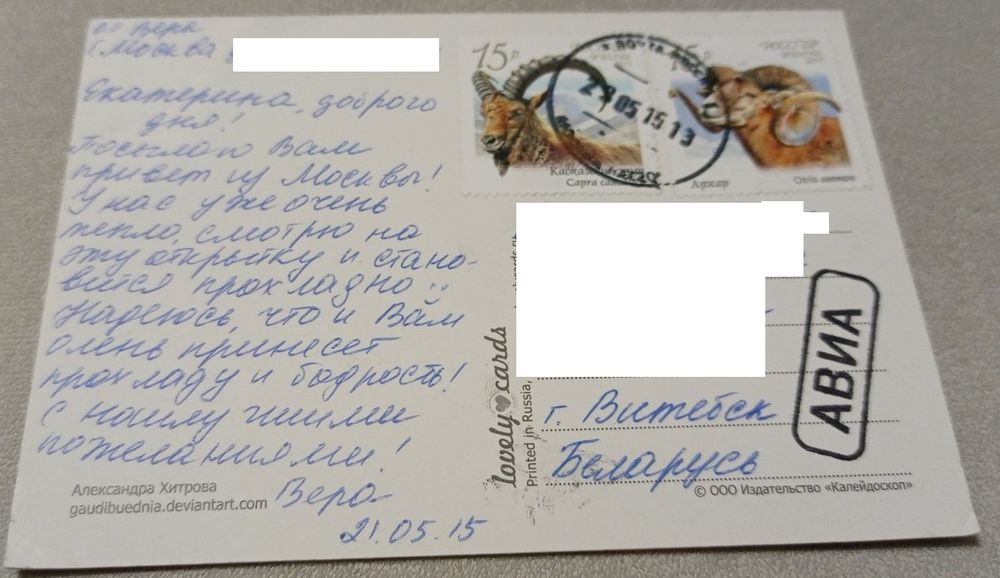 от Веры
г. Москва
Екатерина, доброго
дня!
Посылаю Вам
привет из Москвы!
У нас уже очень
тепло, смотрю на
эту открытку и стано-
вится прохладно :)
Надеюсь, что и Вам
олень принесет
прохладу и бодрость!
С наилучшими
пожеланиями!
Вера
21.05.15
Александра Хитрова
gaudibuednia.deviantart.com
15 р.
РОССИЯ
Capra
Архар
Ovis ammon
ПОЧТА
05 15 13
lovely cards
Printed in Russia,
г. Витебск
Беларусь
АВИА
© ООО Издательство «Калейдоскоп»